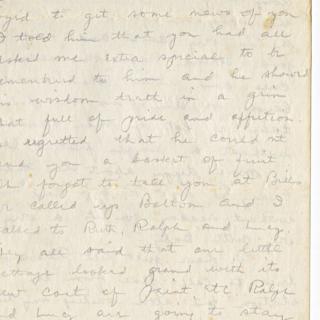 to get some news of you
I told him that you had all
asked me extra special to be
remembered to him and he showed
his wisdom truth in a grin
that full of pride and affection.
He regretted that he couldn't
send you a basket of fruit
forgot to tell you at Bills
called up Boltom and I
talked to Ruth, Ralph and Lucy.
They all said that our little
cottage looked grand with its
new coat of paint, etc Ralph
and Lucy are going to stay